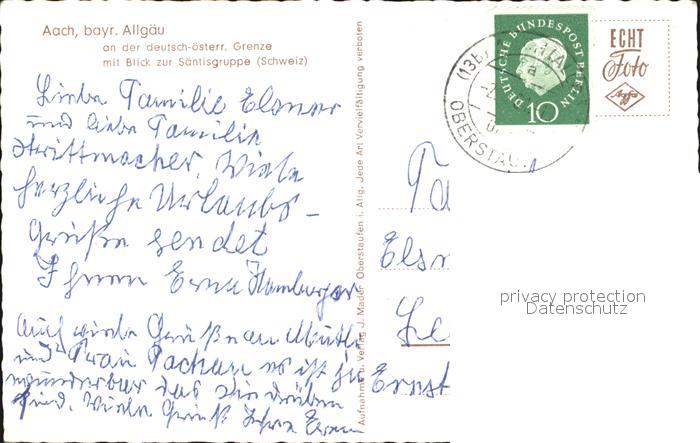 Aach, bayr. Allgäu
an der deutsch-österr. Grenze
mit Blick zur Säntisgruppe (Schweiz)
Liebe Familie Elsner
und liebe Familie
Strittmacher. Viele
herzliche Urlaubs-
Grüße sendet
Ihnen Erna Hamburger
Auch viele Grüße an Mutti
und Frau es ist ja
wunderbar das sie drüben
sind. Viele Grüße Ihre Erna
Aufnahme u. Verlag J. Mader Oberstaufen i. Allg. Jede Art Vervielfältigung verboten
DEUTSCHE BUNDESPOST BERLIN
10
(13b)
OBERSTAU
ECHT
Foto
Agfa
Fa
Elsn
Ernst
privacy protection
Datenschutz